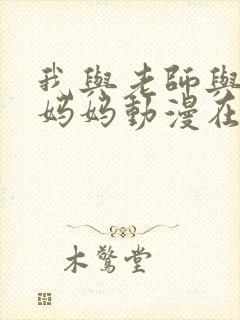 我與老師與
媽媽動漫在
木驚堂